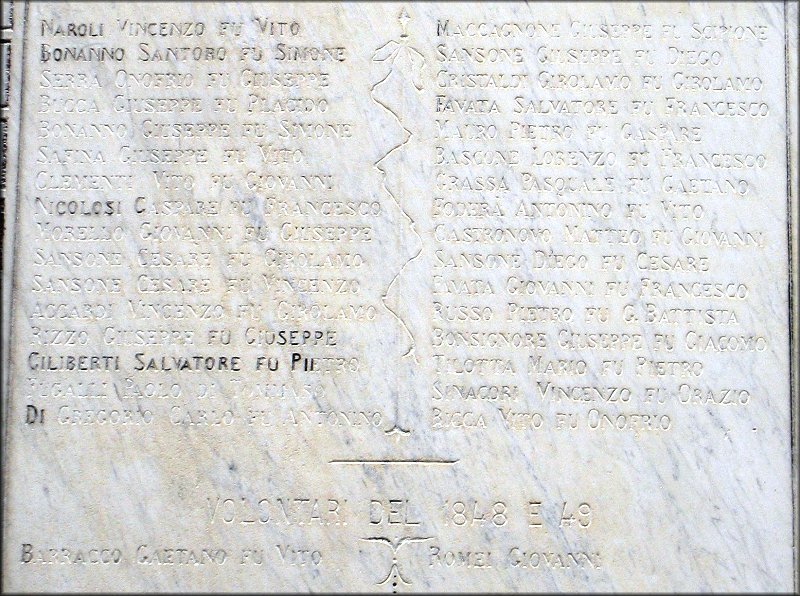 Naroli Vincenzo fu Vito
Bonanno Santoro fu Simone
Serra Onofrio fu Giuseppe
Bucca Giuseppe fu Placido
Bonanno Giuseppe fu Simone
Safina Giuseppe fu Vito
Clementi Vito fu Giovanni
Nicolosi Gaspare fu Francesco
Morello Giovanni fu Giuseppe
Sansone Cesare fu Girolamo
Sansone Cesare fu Vincenzo
Accardi Vincenzo fu Girolamo
Rizzo Giuseppe fu Giuseppe
Ciliberti Salvatore fu Pietro
Paolo di
Di Gregorio Carlo fu Antonino
Maccagnone Giuseppe fu Scipione
Sansone Giuseppe fu Diego
Cristaldi Girolamo fu Girolamo
Favata Salvatore fu Francesco
Mauro Pietro fu Gaspare
Bascone Lorenzo fu Francesco
Grassa Pasquale fu Gaetano
Foderà Antonino fu Vito
Castronovo Matteo fu Giovanni
Sansone Diego fu Cesare
Favata Giovanni fu Francesco
Russo Pietro fu G. Battista
Bonsignore Giuseppe fu Giacomo
Tilotta Mario fu Pietro
Sinacori Vincenzo fu Orazio
Vito fu Onofrio
VOLONTARI DEL 1848 E 49
Barracco Gaetano fu Vito
Romei Giovanni